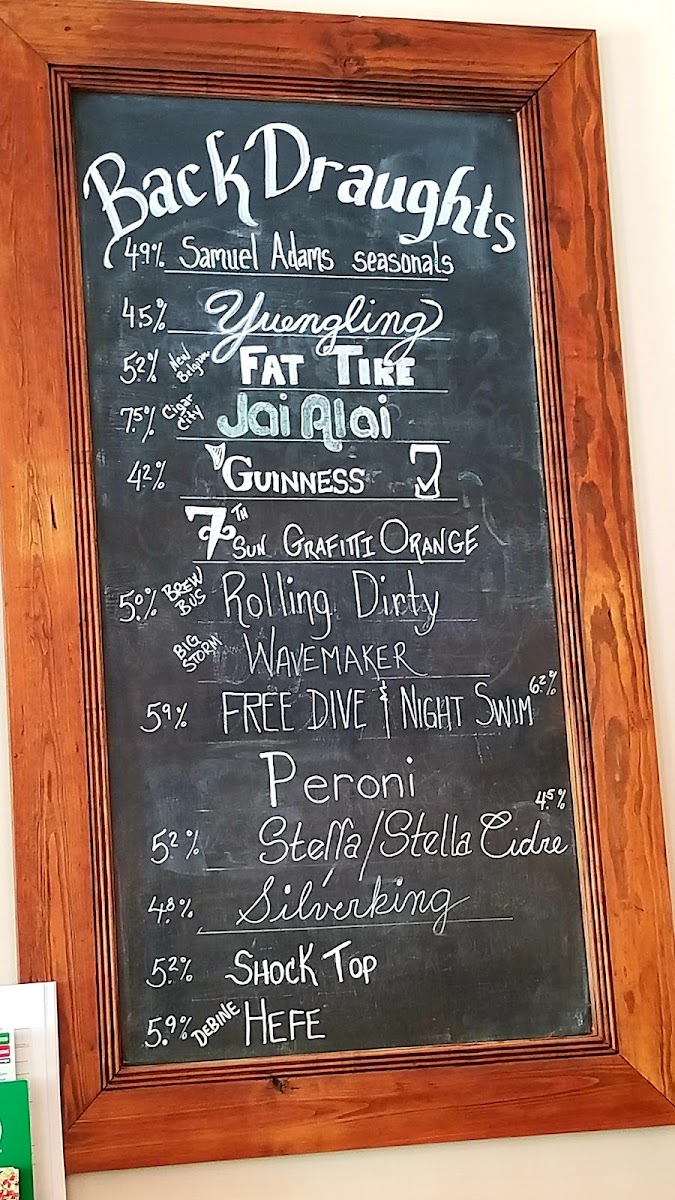 Back Draughts
4.9% Samuel Adams seasonals
4.5% Yuengling
5.2% New Belgium FAT TIRE
7.5% Cigar City Jai Alai
4.2% GUINNESS
7TH SUN GRAFITTI ORANGE
5.0% BREW BUS Rolling Dirty
BIG STORM WAVEMAKER
5.9% FREE DIVE & NIGHT SWIM 6.2%
Peroni
5.2% Stella/Stella Cidre 4.5%
4.8% Silverking
5.2% SHOCK TOP
5.9% DEBINE HEFE